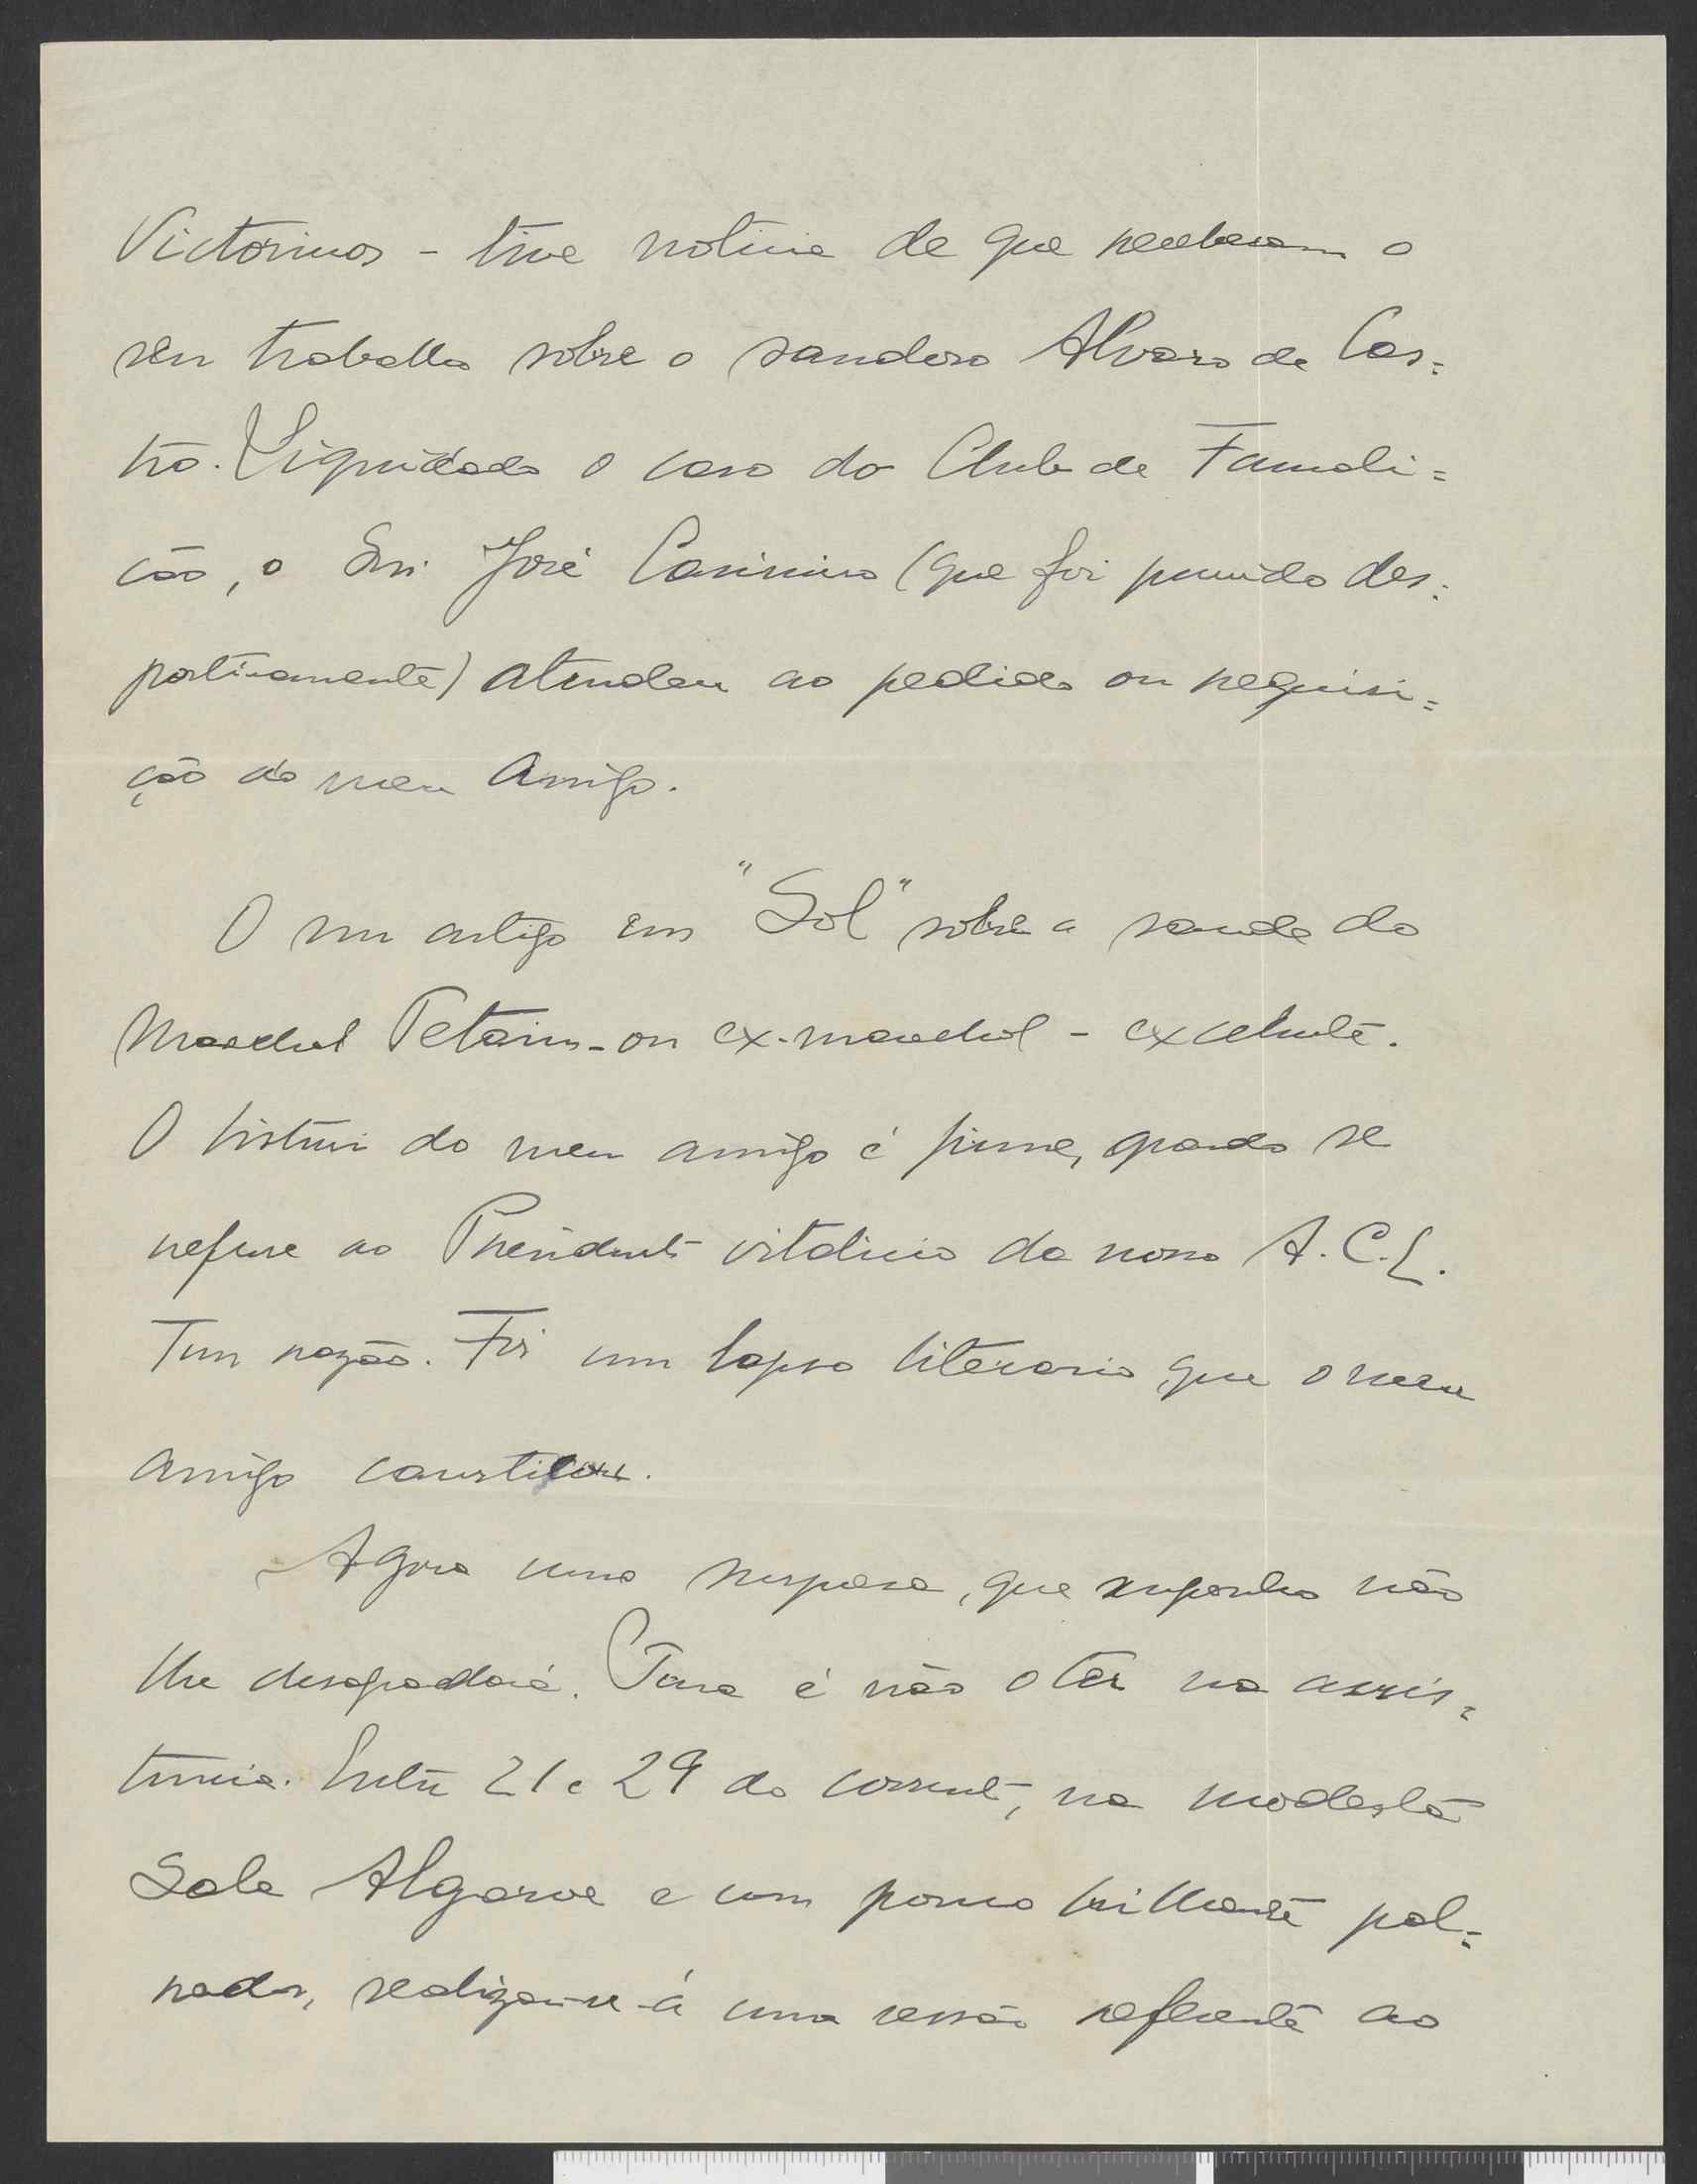 Victorinos - tive noticia de que receberam o
seu trabalho sobre o saudoso Alvaro de Cas=
tro. Liquidado o caso do Club de Famali=
cão, o Snr. José Casimiro (que foi punido des=
portivamente) atendeu ao pedido ou requisi=
ção do meu Amigo.
O seu artigo em "Sol" sobre a saude do
Marechal Petain - ou ex-marechal - excelente.
O bisturi do meu amigo é firme, quando se
refere ao Presidente vitalicio da nossa A.C.L.
Tem razão. Foi um lapso literario que o meu
amigo
Agora uma surpresa, que suponho não
lhe desagradará. Pena é não o ter na assis=
tencia. Entre 21 e 29 do corrente, na modesta
Sala Algarve e com pouco brilhante pal=
rador, realizar-se-á uma sessão referente ao